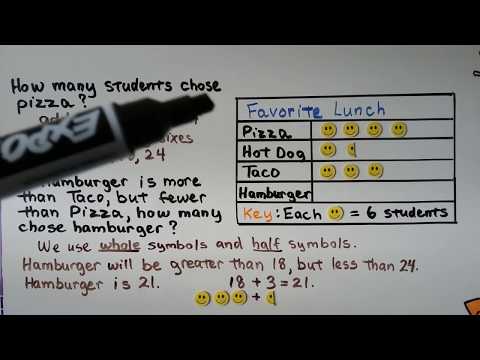 How many students chose
pizza?
sixes
24
Hamburger is more
than Taco, but fewer
than Pizza, how many
chose hamburger?
We use whole symbols and half symbols.
Hamburger will be greater than 18, but less than 24.
Hamburger is 21. 18 + 3 = 21.
+
EXPO
Favorite Lunch
Pizza
Hot Dog
Taco
Hamburger
Key: Each = 6 students